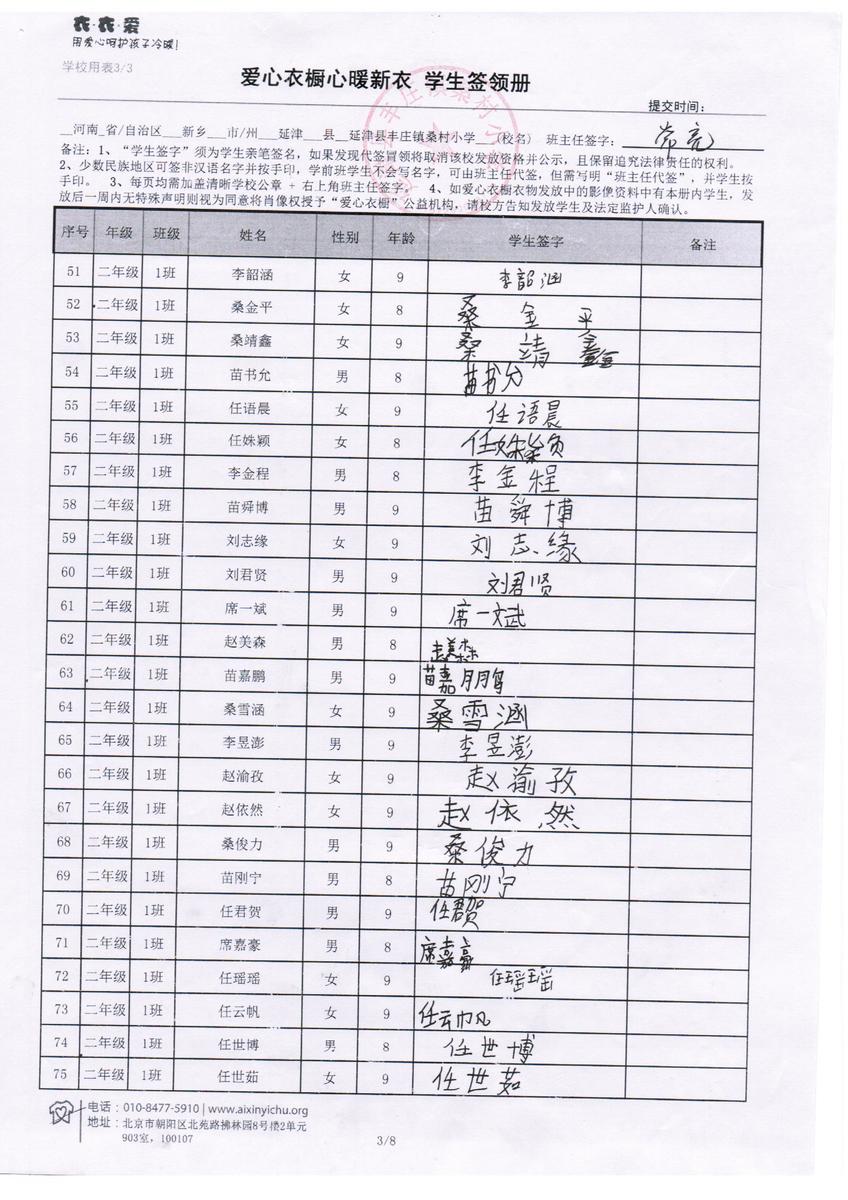 衣·衣·爱
用爱心呵护孩子冷暖!
学校用表3/3
爱心衣橱心暖新衣 学生签领册
提交时间:
__河南_省/自治区___新乡___市/州___延津___县__延津县丰庄镇桑村小学___(校名) 班主任签字:
备注:1、“学生签字”须为学生亲笔签名,如果发现代签冒领将取消该校发放资格并公示,且保留追究法律责任的权利。
2、少数民族地区可签非汉语名字并按手印,学前班学生不会写名字,可由班主任代签,但需写明“班主任代签”,并学生按
手印。 3、每页均需加盖清晰学校公章 + 右上角班主任签字。 4、如爱心衣橱衣物发放中的影像资料中有本册内学生,发
放后一周内无特殊声明则视为同意将肖像权授予“爱心衣橱”公益机构,请校方告知发放学生及法定监护人确认。
序号 年级 班级 姓名 性别 年龄 学生签字 备注
51 二年级 1班 李韶涵 女 9 李韶涵
52 二年级 1班 桑金平 女 8 桑金平
53 二年级 1班 桑靖鑫 女 9 桑靖鑫
54 二年级 1班 苗书允 男 8 苗书允
55 二年级 1班 任语晨 女 9 任语晨
56 二年级 1班 任姝颖 女 8 任姝颖
57 二年级 1班 李金程 男 8 李金程
58 二年级 1班 苗舜博 男 9 苗舜博
59 二年级 1班 刘志缘 女 9 刘志缘
60 二年级 1班 刘君贤 男 9 刘君贤
61 二年级 1班 席一斌 男 9 席一斌
62 二年级 1班 赵美森 男 8 赵美森
63 二年级 1班 苗嘉鹏 男 9 苗嘉鹏
64 二年级 1班 桑雪涵 女 9 桑雪涵
65 二年级 1班 李昱澎 男 9 李昱澎
66 二年级 1班 赵渝孜 女 9 赵渝孜
67 二年级 1班 赵依然 女 9 赵依然
68 二年级 1班 桑俊力 男 9 桑俊力
69 二年级 1班 苗刚宁 男 8 苗刚宁
70 二年级 1班 任君贺 男 9 任君贺
71 二年级 1班 席嘉豪 男 8 席嘉豪
72 二年级 1班 任瑶瑶 女 9 任瑶瑶
73 二年级 1班 任云帆 女 9 任云帆
74 二年级 1班 任世博 男 8 任世博
75 二年级 1班 任世茹 女 9 任世茹
电话:010-8477-5910 | www.aixinyichu.org
地址:北京市朝阳区北苑路拂林园8号楼2单元
903室,100107
3/8